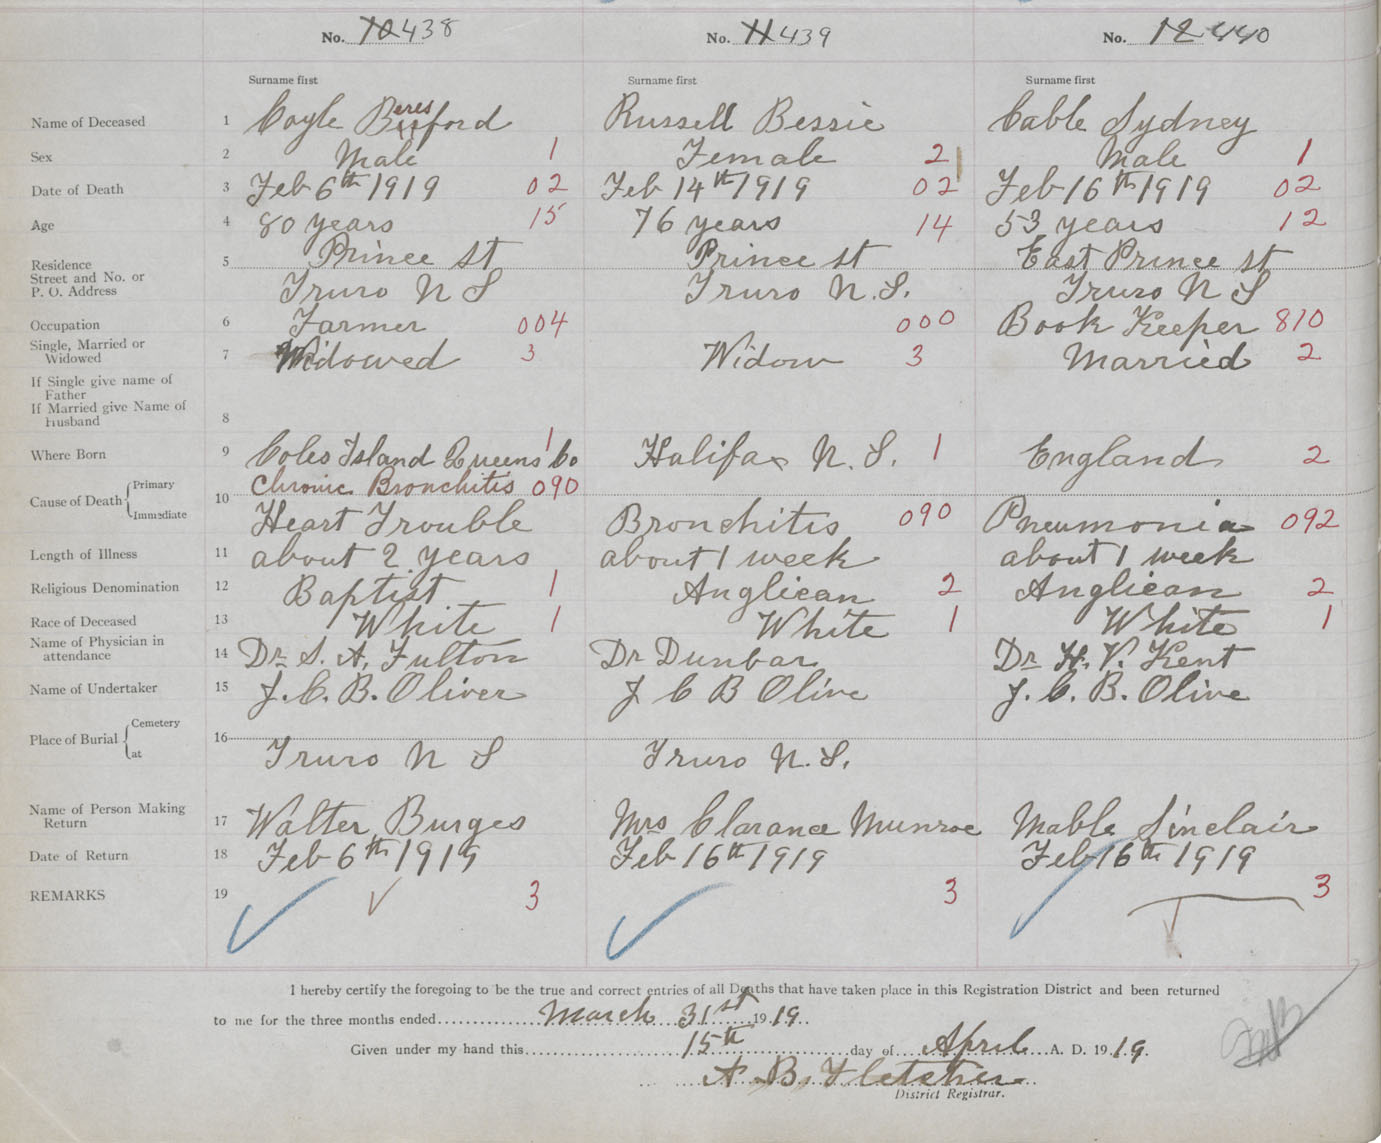 No. 10 438 No. 11 439 No. 12 440
Surname first Surname first Surname first
Name of Deceased 1 Coyle Beresford Russell Bessie Cable Sydney
Sex 2 Male 1 Female 2 Male 1
Date of Death 3 Feb 6th 1919 02 Feb 14th 1919 02 Feb 16th 1919 02
Age 4 80 years 15 76 years 14 53 years 12
Residence 5 Prince St Prince st East Prince st
Street and No. or
P. O. Address Truro N S Truro N.S. Truro N S
Occupation 6 Farmer 004 000 Book Keeper 810
Single, Married or
Widowed 7 Widowed 3 Widow 3 Married 2
If Single give name of
Father
If Married give Name of
Husband 8
Where Born 9 Coles Island Queens Co 1 Halifax N. S. 1 England 2
Cause of Death Primary 10 Chronic Bronchitis 090
Immediate Heart Trouble Bronchitis 090 Pneumonia 092
Length of Illness 11 about 2 years about 1 week about 1 week
Religious Denomination 12 Baptist 1 Anglican 2 Anglican 2
Race of Deceased 13 White 1 White 1 White 1
Name of Physician in
attendance 14 Dr S. A. Fulton Dr Dunbar Dr H. V. Kent
Name of Undertaker 15 J. C. B. Oliver J C B Olive J. C. B. Olive
Place of Burial Cemetery 16
at Truro N S Truro N.S.
Name of Person Making
Return 17 Walter Burges Mrs Clarance Munroe Mable Sinclair
Date of Return 18 Feb 6th 1919 Feb 16th 1919 Feb 16th 1919
REMARKS 19 3 3 3
I hereby certify the foregoing to be the true and correct entries of all Deaths that have taken place in this Registration District and been returned
to me for the three months ended March 31st 1919.
Given under my hand this 15th day of April A. D. 1919.
A. B. Fletcher
District Registrar.